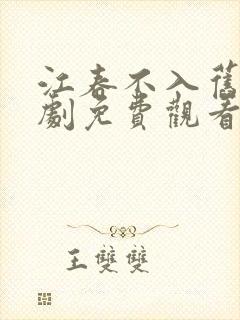 江春不入舊
劇免費觀看
王雙雙